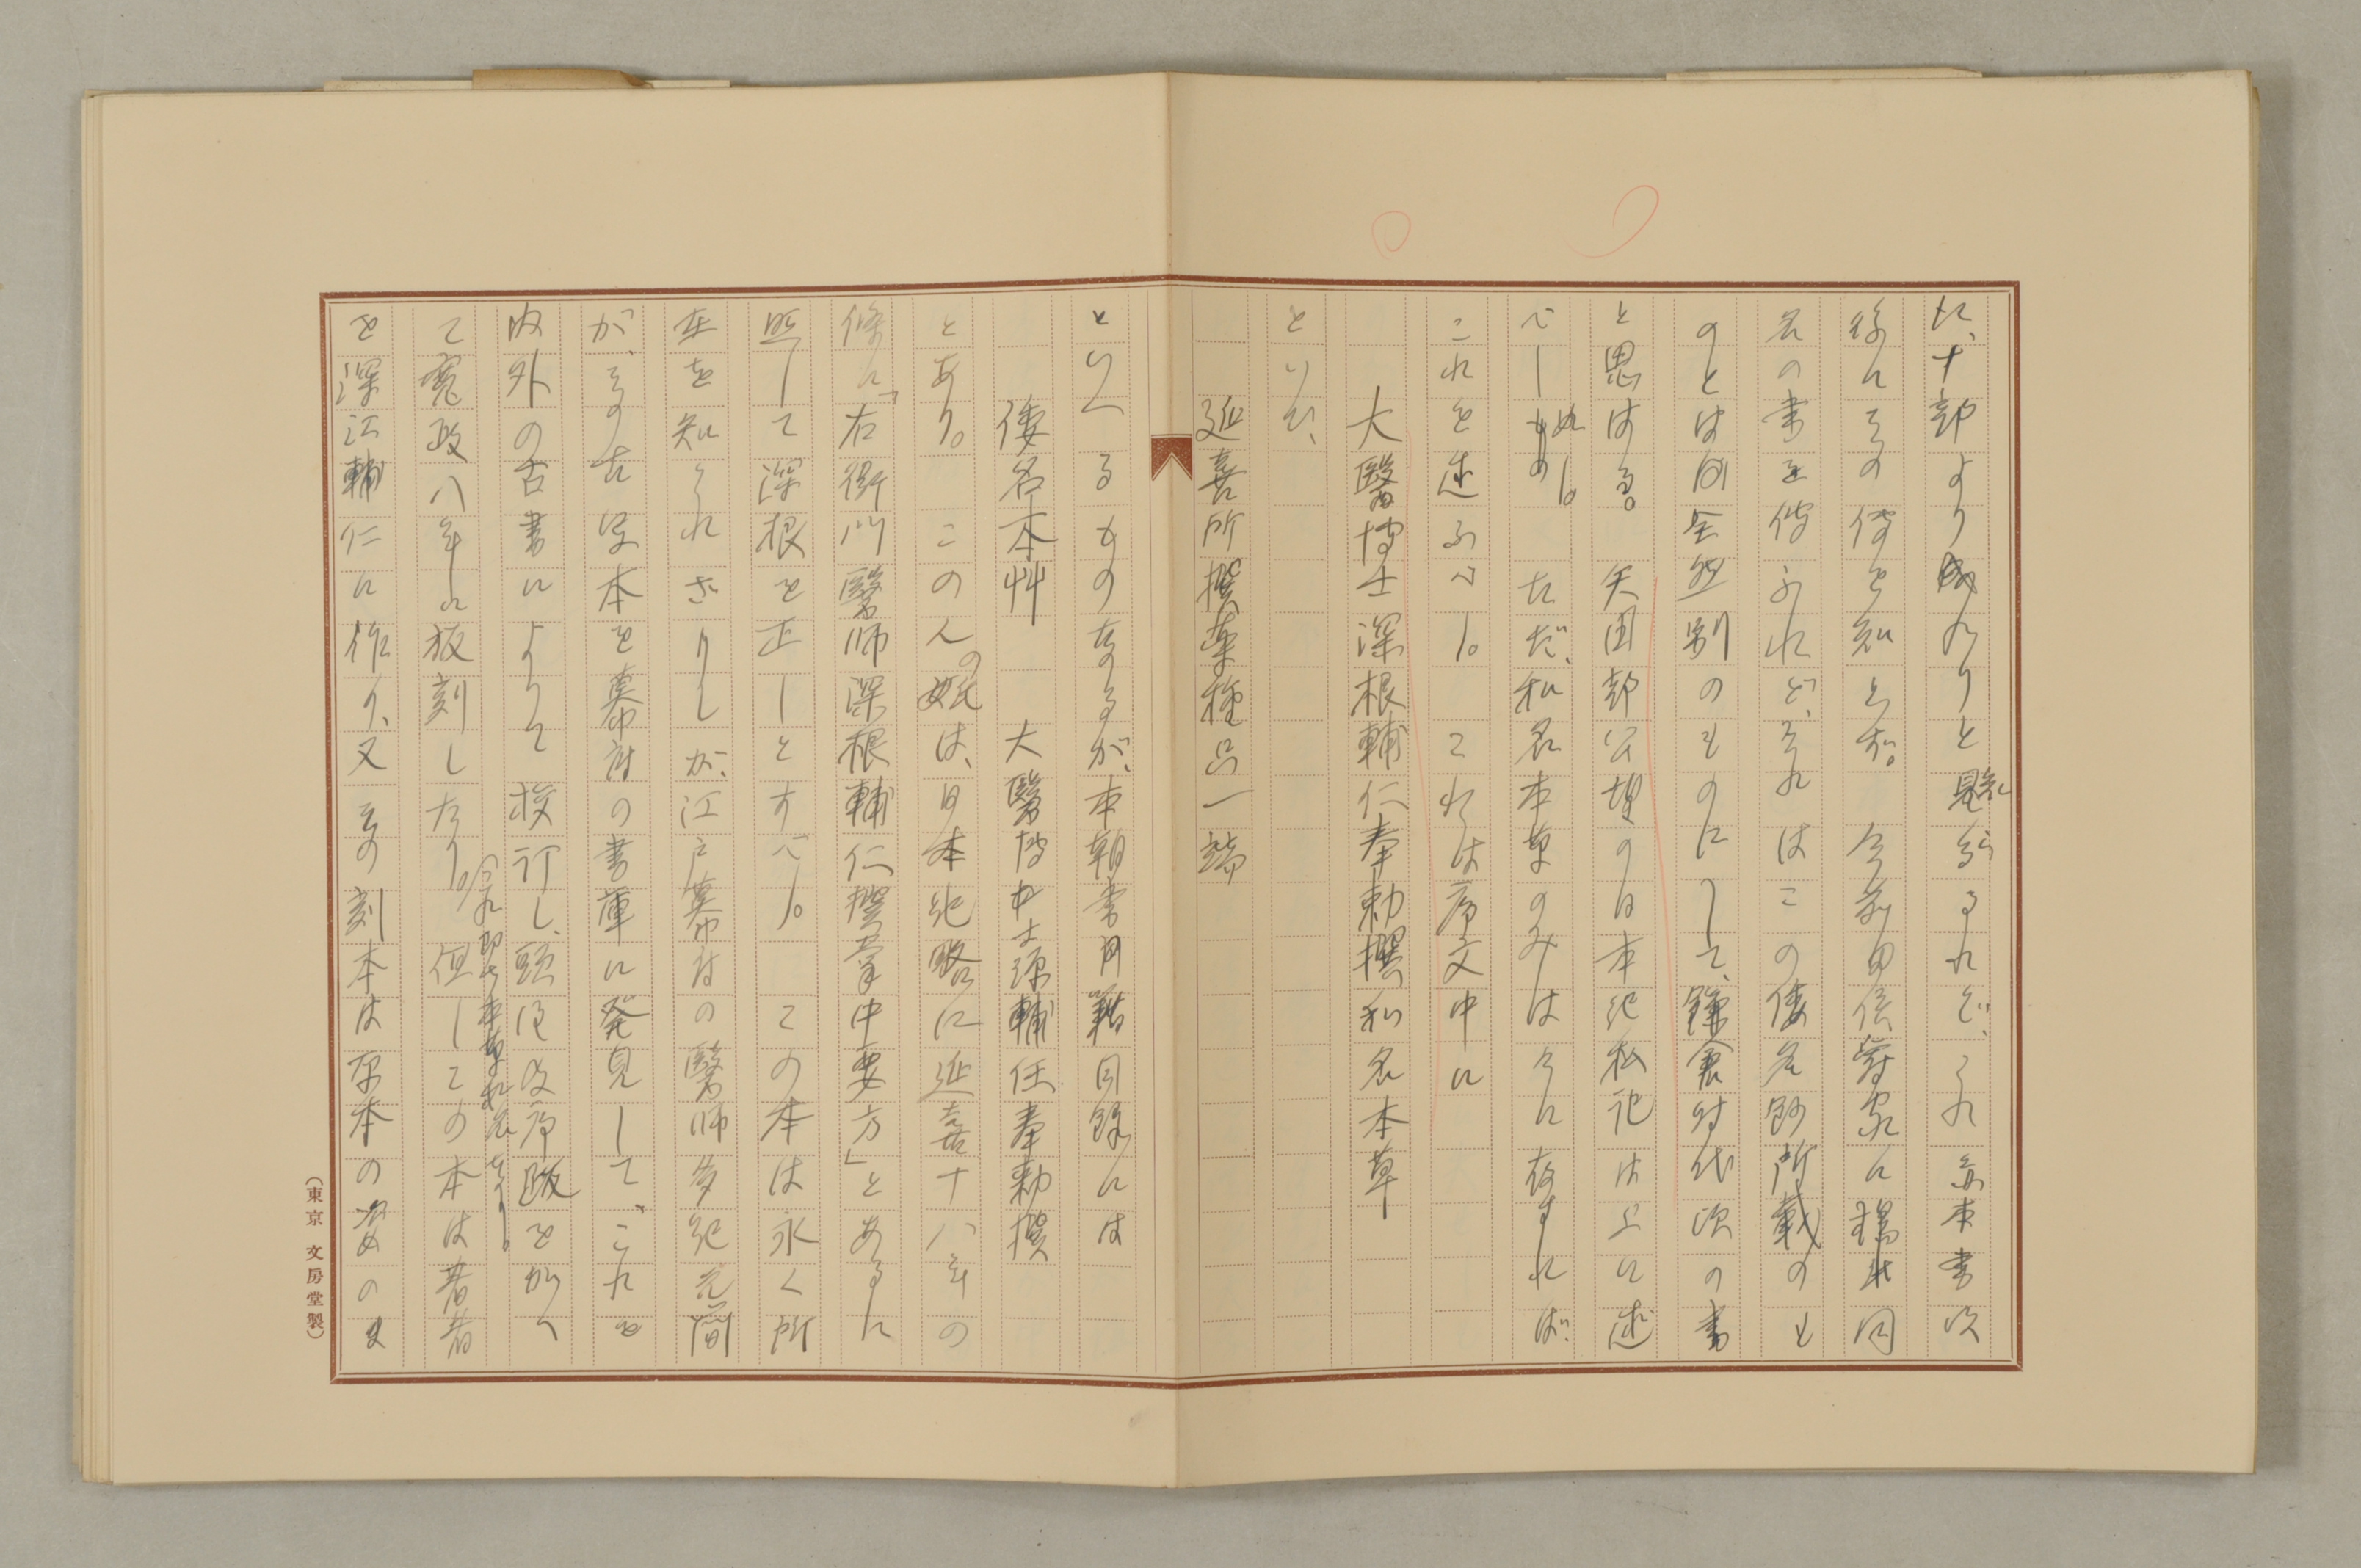 に、十部より成れりと見らるれど、これ亦本書以
後にその傳を知らず。今前田侯爵家に楊氏同
名の書を傳ふれど、それはこの倭名鈔所載のも
のとは全然別のものにして、鎌倉時代頃の書
と思はる。矢田部公望の日本紀私記は上に述
べしぬ。ただ、和名本草のみは今に存すれば、
これを述ふべし。これは序文中に
大醫博士深根輔仁奉勅撰和名本草
といひ、
延喜所撰薬種品一端
といへるものなるが、本朝書目籍目録には
倭名本艸 大醫博士源輔仁奉勅撰
とあり。この人の姓は、日本紀略に延喜十八年の
條に「右衛門醫師深根輔仁撰掌中要方」とあるに
照して深根を正しとすべし。この本は永く所
在を知られざりしが、江戸幕府の醫師多紀元簡
が、その古写本を幕府の書庫に発見して、これを
内外の古書によりて校訂し、頭注及序跋を加へ
て寛政八年に板刻したり。但しこの本は著者
これ即ち本草和名なり。
を深江輔仁に作り、又その刻本は原本の姿のま
(東京 文房堂製)